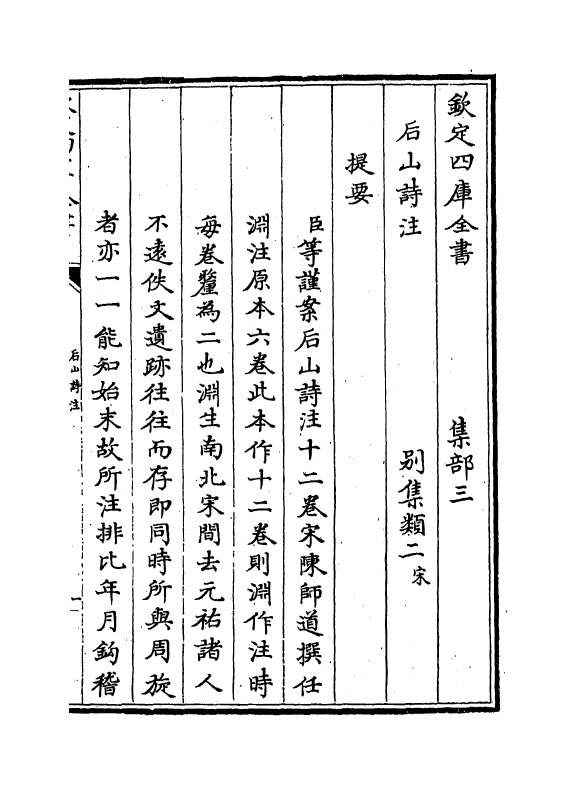 欽定四庫全書　　　　集部三
后山詩注　　　　別集類二宋
提要
臣等謹案后山詩注十二卷宋陳師道撰任
淵注原本六卷此本作十二卷則淵作注時
每卷釐為二也淵生南北宋間去元祐諸人
不遠佚文遺跡往往而存即同時所與周旋
者亦一一能知始末故所注排比年月鈎稽
后山詩注
一